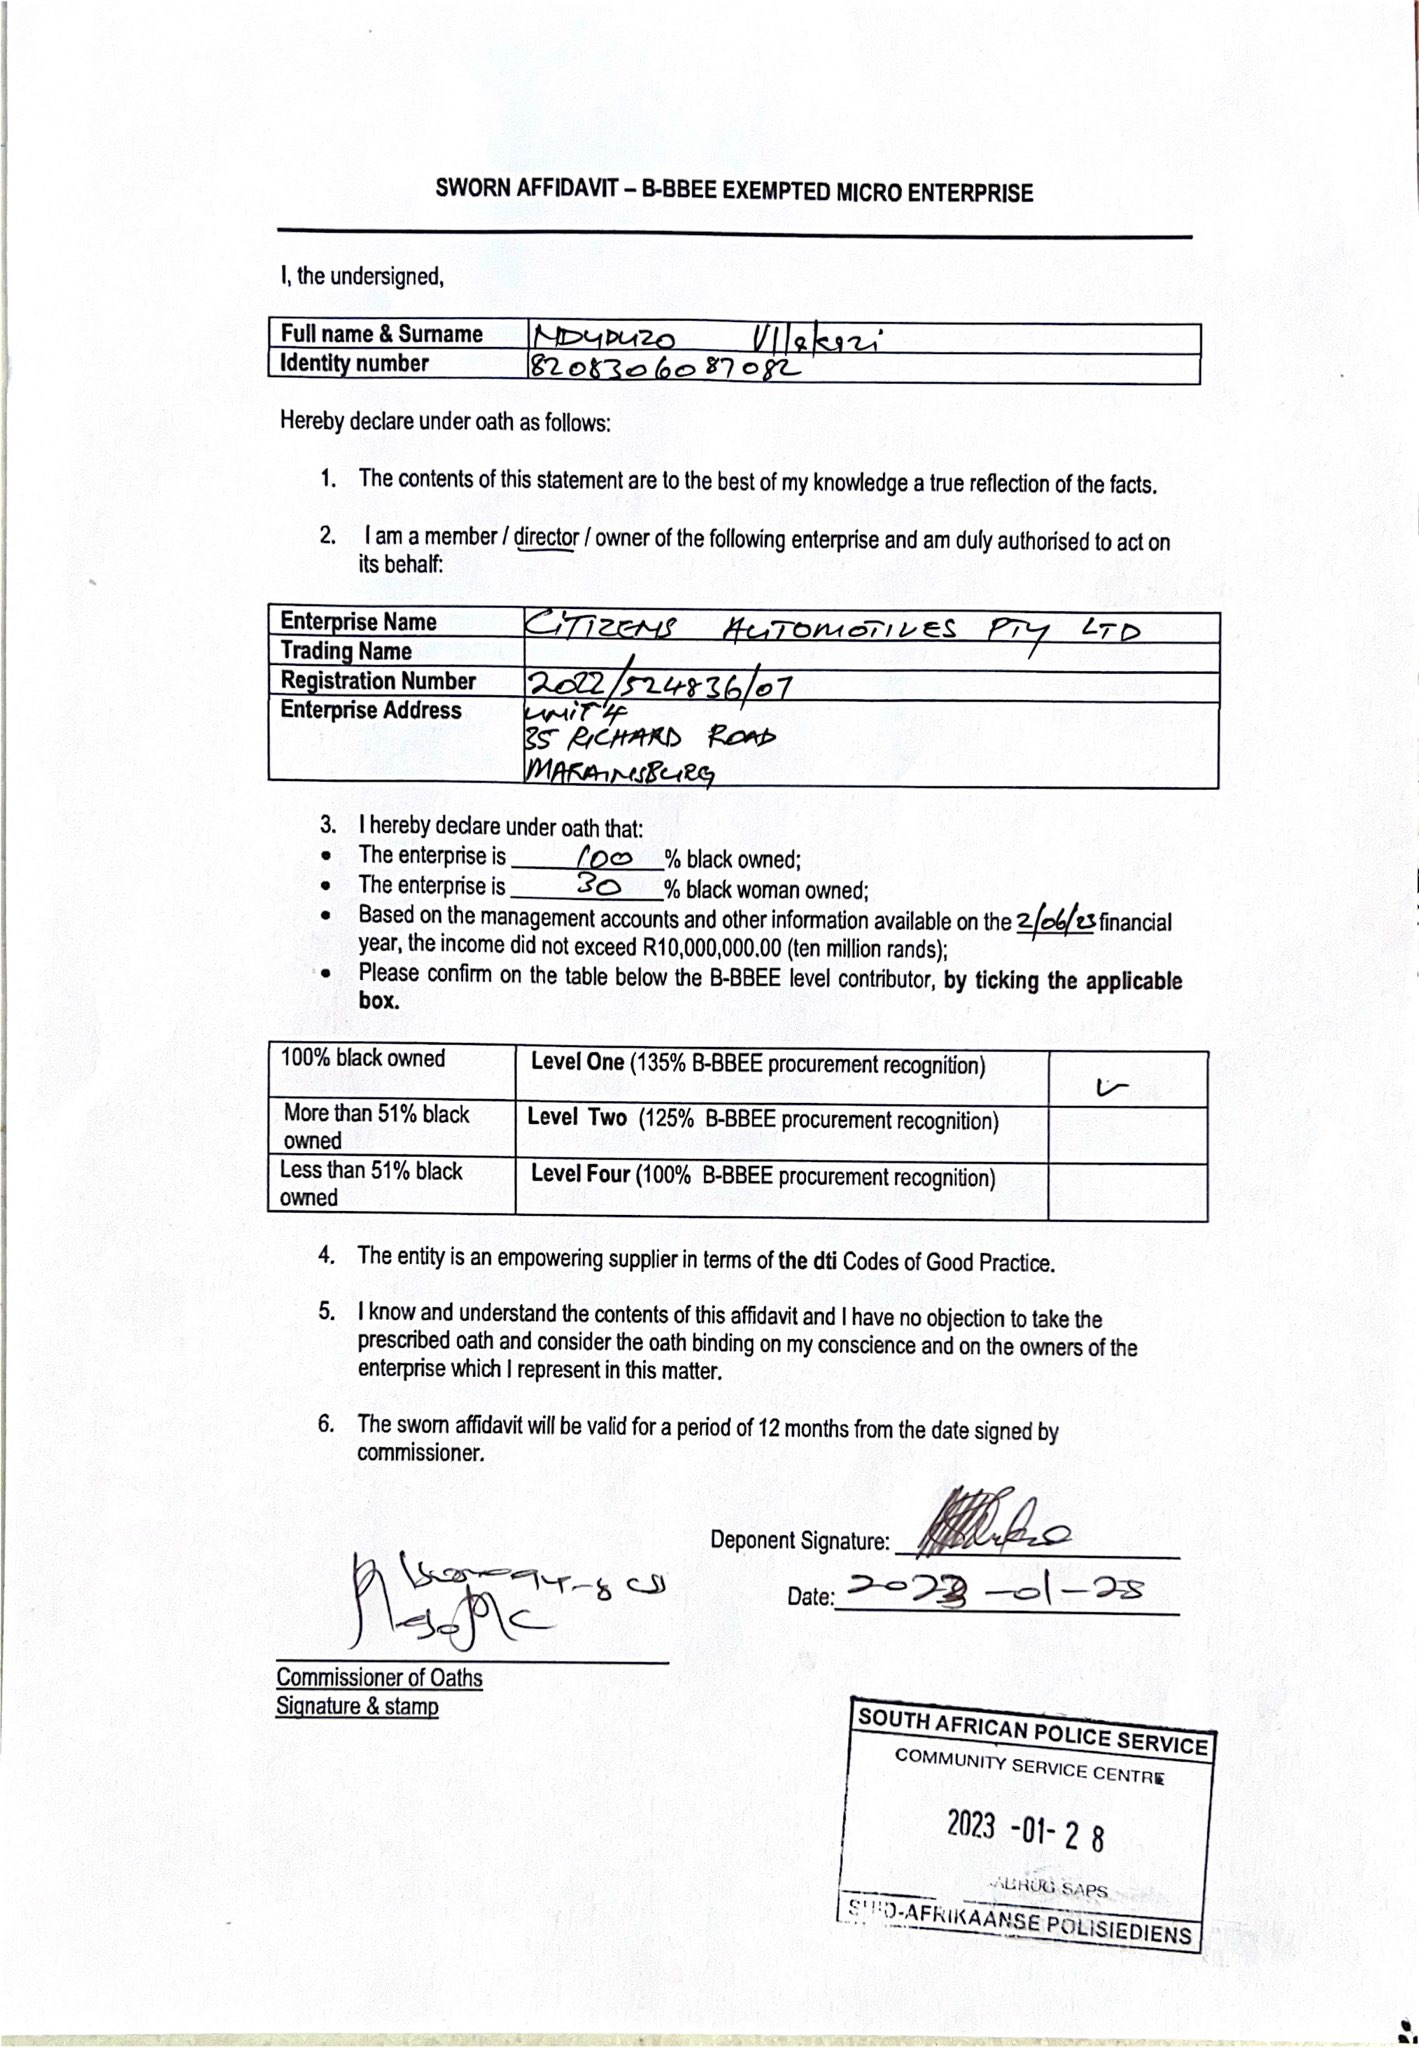 SWORN AFFIDAVIT – B-BBEE EXEMPTED MICRO ENTERPRISE
I, the undersigned,
Full name & Surname NDUDUZO Vilakazi
Identity number 8208306087082
Hereby declare under oath as follows:
1. The contents of this statement are to the best of my knowledge a true reflection of the facts.
2. I am a member / director / owner of the following enterprise and am duly authorised to act on
its behalf:
Enterprise Name CITIZENS AUTOMOTIVES PTY LTD
Trading Name
Registration Number 2022/524836/07
Enterprise Address UNIT 4
35 RICHARD ROAD
MARAINSBURG
3. I hereby declare under oath that:
• The enterprise is 100 % black owned;
• The enterprise is 30 % black woman owned;
• Based on the management accounts and other information available on the 2/06/23 financial
year, the income did not exceed R10,000,000.00 (ten million rands);
• Please confirm on the table below the B-BBEE level contributor, by ticking the applicable
box.
100% black owned Level One (135% B-BBEE procurement recognition) ✓
More than 51% black Level Two (125% B-BBEE procurement recognition)
owned
Less than 51% black Level Four (100% B-BBEE procurement recognition)
owned
4. The entity is an empowering supplier in terms of the dti Codes of Good Practice.
5. I know and understand the contents of this affidavit and I have no objection to take the
prescribed oath and consider the oath binding on my conscience and on the owners of the
enterprise which I represent in this matter.
6. The sworn affidavit will be valid for a period of 12 months from the date signed by
commissioner.
Deponent Signature:
Date: 2023-01-28
Commissioner of Oaths
Signature & stamp
SOUTH AFRICAN POLICE SERVICE
COMMUNITY SERVICE CENTRE
2023 -01- 28
SAPS
SUID-AFRIKAANSE POLISIEDIENS